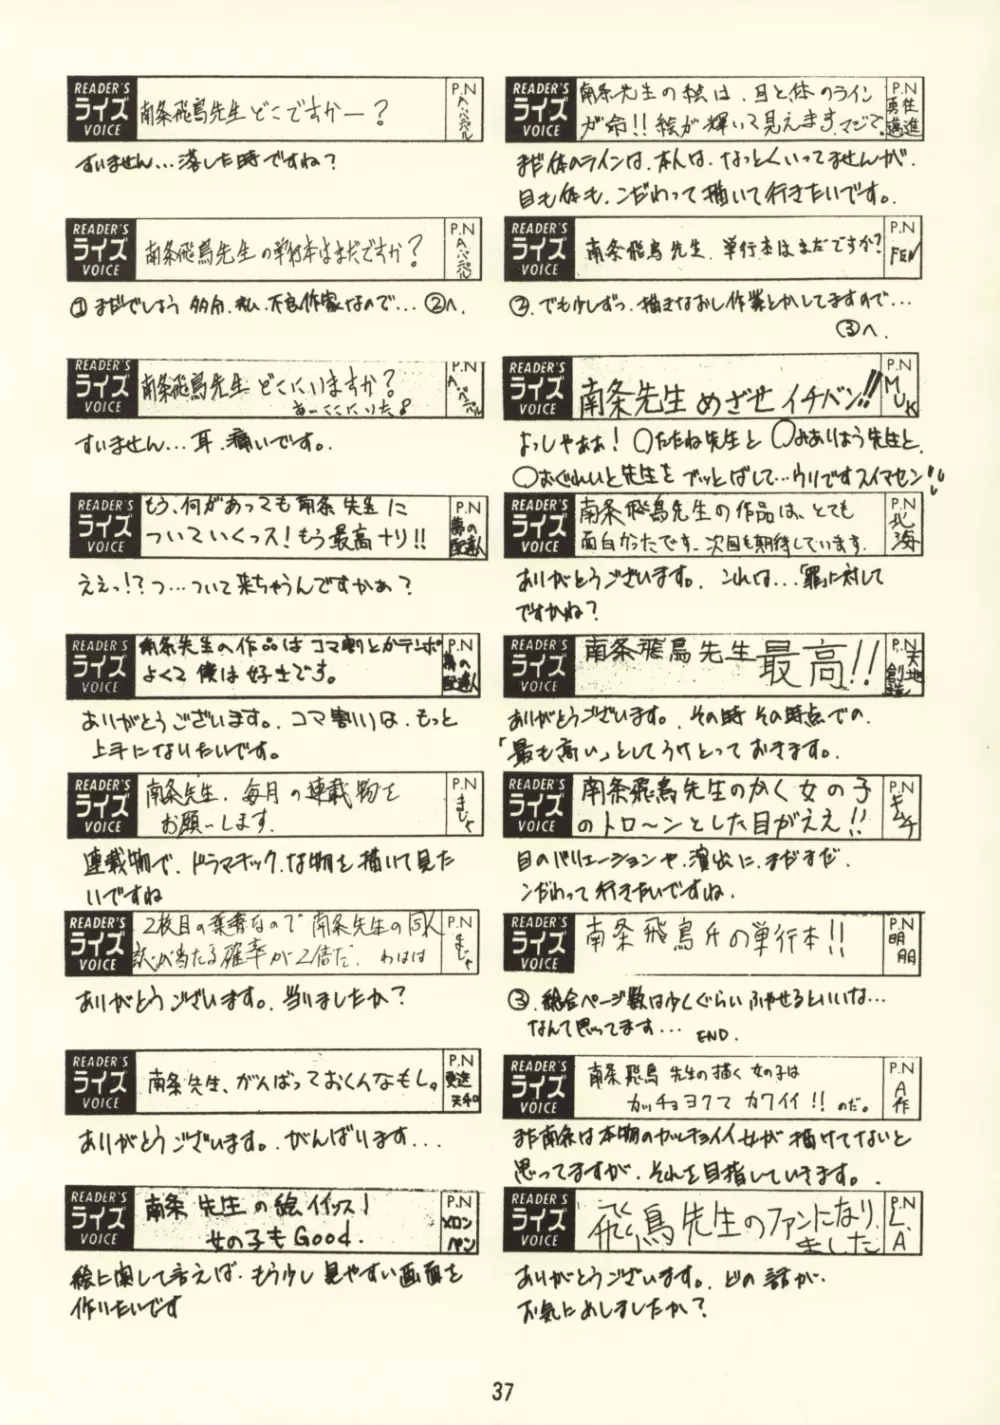 READER'S
ライズ
VOICE
南条飛鳥先生どこですかー?
P.N
すいません…落した時ですね?
READER'S
ライズ
VOICE
南条飛鳥先生の単行本はまだですか?
P.N
①まだでしょう 多分、私、不良作家なので… ②へ.
READER'S
ライズ
VOICE
南条飛鳥先生 どこにいますか?
あ、ここにいた
P.N
すいません…耳、痛いです。
READER'S
ライズ
VOICE
もう、何があっても南条先生に
ついていくっス!もう最高ナリ!!
P.N
夢の
配達人
ええっ!?つ…ついて来ちゃうんですかぁ?
READER'S
ライズ
VOICE
南条先生の作品はコマ割とかテンポ
よくて僕は好きです。
P.N
夢の
配達人
ありがとうございます。コマ割りは、もっと
上手になりたいです。
READER'S
ライズ
VOICE
南条先生、毎月の連載物を
お願いします.
P.N
まじょ
連載物で、ドラマチックな物を描いて見た
いですね
READER'S
ライズ
VOICE
2枚目の葉書なので南条先生の同人
誌が当たる確率が2倍だ. わはは
P.N
まじょ
ありがとうございます。当りましたか?
READER'S
ライズ
VOICE
南条先生、がんばっておくんなもし。
P.N
ありがとうございます。がんばります…
READER'S
ライズ
VOICE
南条先生の絵イイッス!
女の子もGood.
P.N
メロン
パン
絵に関して言えば、もう少し見やすい画面を
作りたいです
READER'S
ライズ
VOICE
南条先生の絵は、目と、体のライン
が命!!絵が輝いて見えます、マジで。
P.N
勇往
邁進
まだ体のラインは、本人は、なっとくいってませんが、
目も体も、こだわって描いて行きたいです。
READER'S
ライズ
VOICE
南条飛鳥先生、単行本はまだですか?
P.N
FEN
②、でも少しずつ、描きなおし作業とかしてますので…
③へ.
READER'S
ライズ
VOICE
南条先生めざせイチバン!!
P.N
MUK
よっしゃああ!○たたね先生と○みありょう先生と、
○おぐれいと先生をブッとばして…ウソですスイマセン!!
READER'S
ライズ
VOICE
南条飛鳥先生の作品は、とても
面白かったです。次回も期待しています.
P.N
北海
ありがとうございます。これは…「罪」に対して
ですかね?
READER'S
ライズ
VOICE
南条飛鳥先生最高!!
P.N
天地
創造
ありがとうございます。その時その時点での、
「最も高い」としてうけとっておきます。
READER'S
ライズ
VOICE
南条飛鳥先生のかく女の子
のトロ〜ンとした目がええ!!
P.N
キムチ
目のバリエーションや、演出に、まだまだ、
こだわって行きたいですね.
READER'S
ライズ
VOICE
南条飛鳥氏の単行本!!
P.N
明
③、総合ページ数は少しぐらいふやせるといいな…
なんて思ってます… END.
READER'S
ライズ
VOICE
南条飛鳥先生の描く女の子は
カッチョヨクてカワイイ!!のだ。
P.N
A作
まだ南条は本物のカッチョイイ女が描けてないと
思ってますが、それを目指していきます。
READER'S
ライズ
VOICE
飛鳥先生のファンになり
ました
P.N
L.A
ありがとうございます。どの話が、
お気にめしましたか?
37